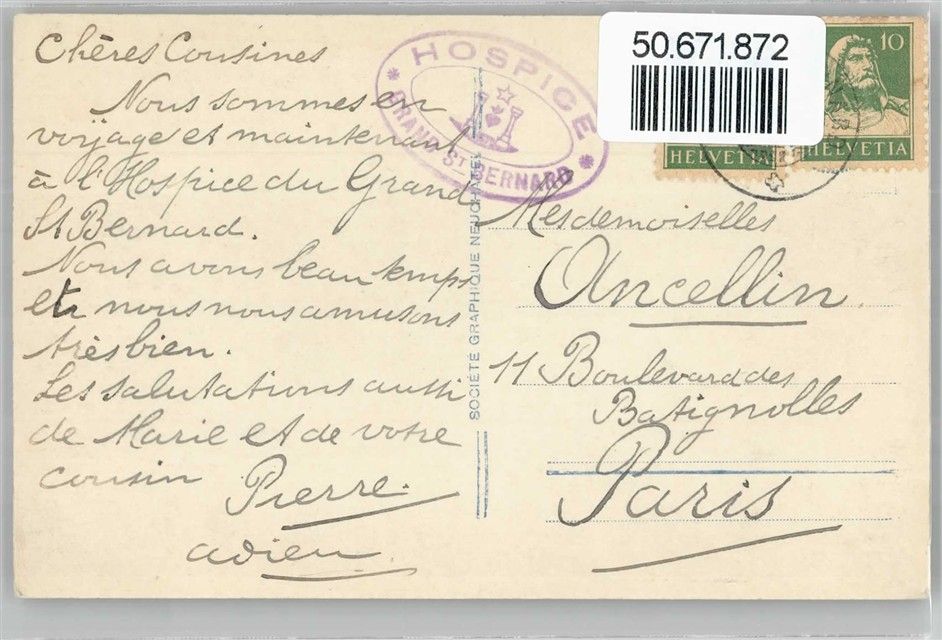 Chères Cousines
Nous sommes en
voyage et maintenant
à l'Hospice du Grand
St Bernard.
Nous avons beau temps
et nous nous amusons
très bien.
Les salutations aussi
de Marie et de votre
cousin Pierre.
adieu
* HOSPICE *
GRAND ST BERNARD
SOCIÉTÉ GRAPHIQUE NEUCHATEL
50.671.872
10
HELVETIA
HELVETIA
Mesdemoiselles
Ancellin
11 Boulevard des
Batignolles
Paris